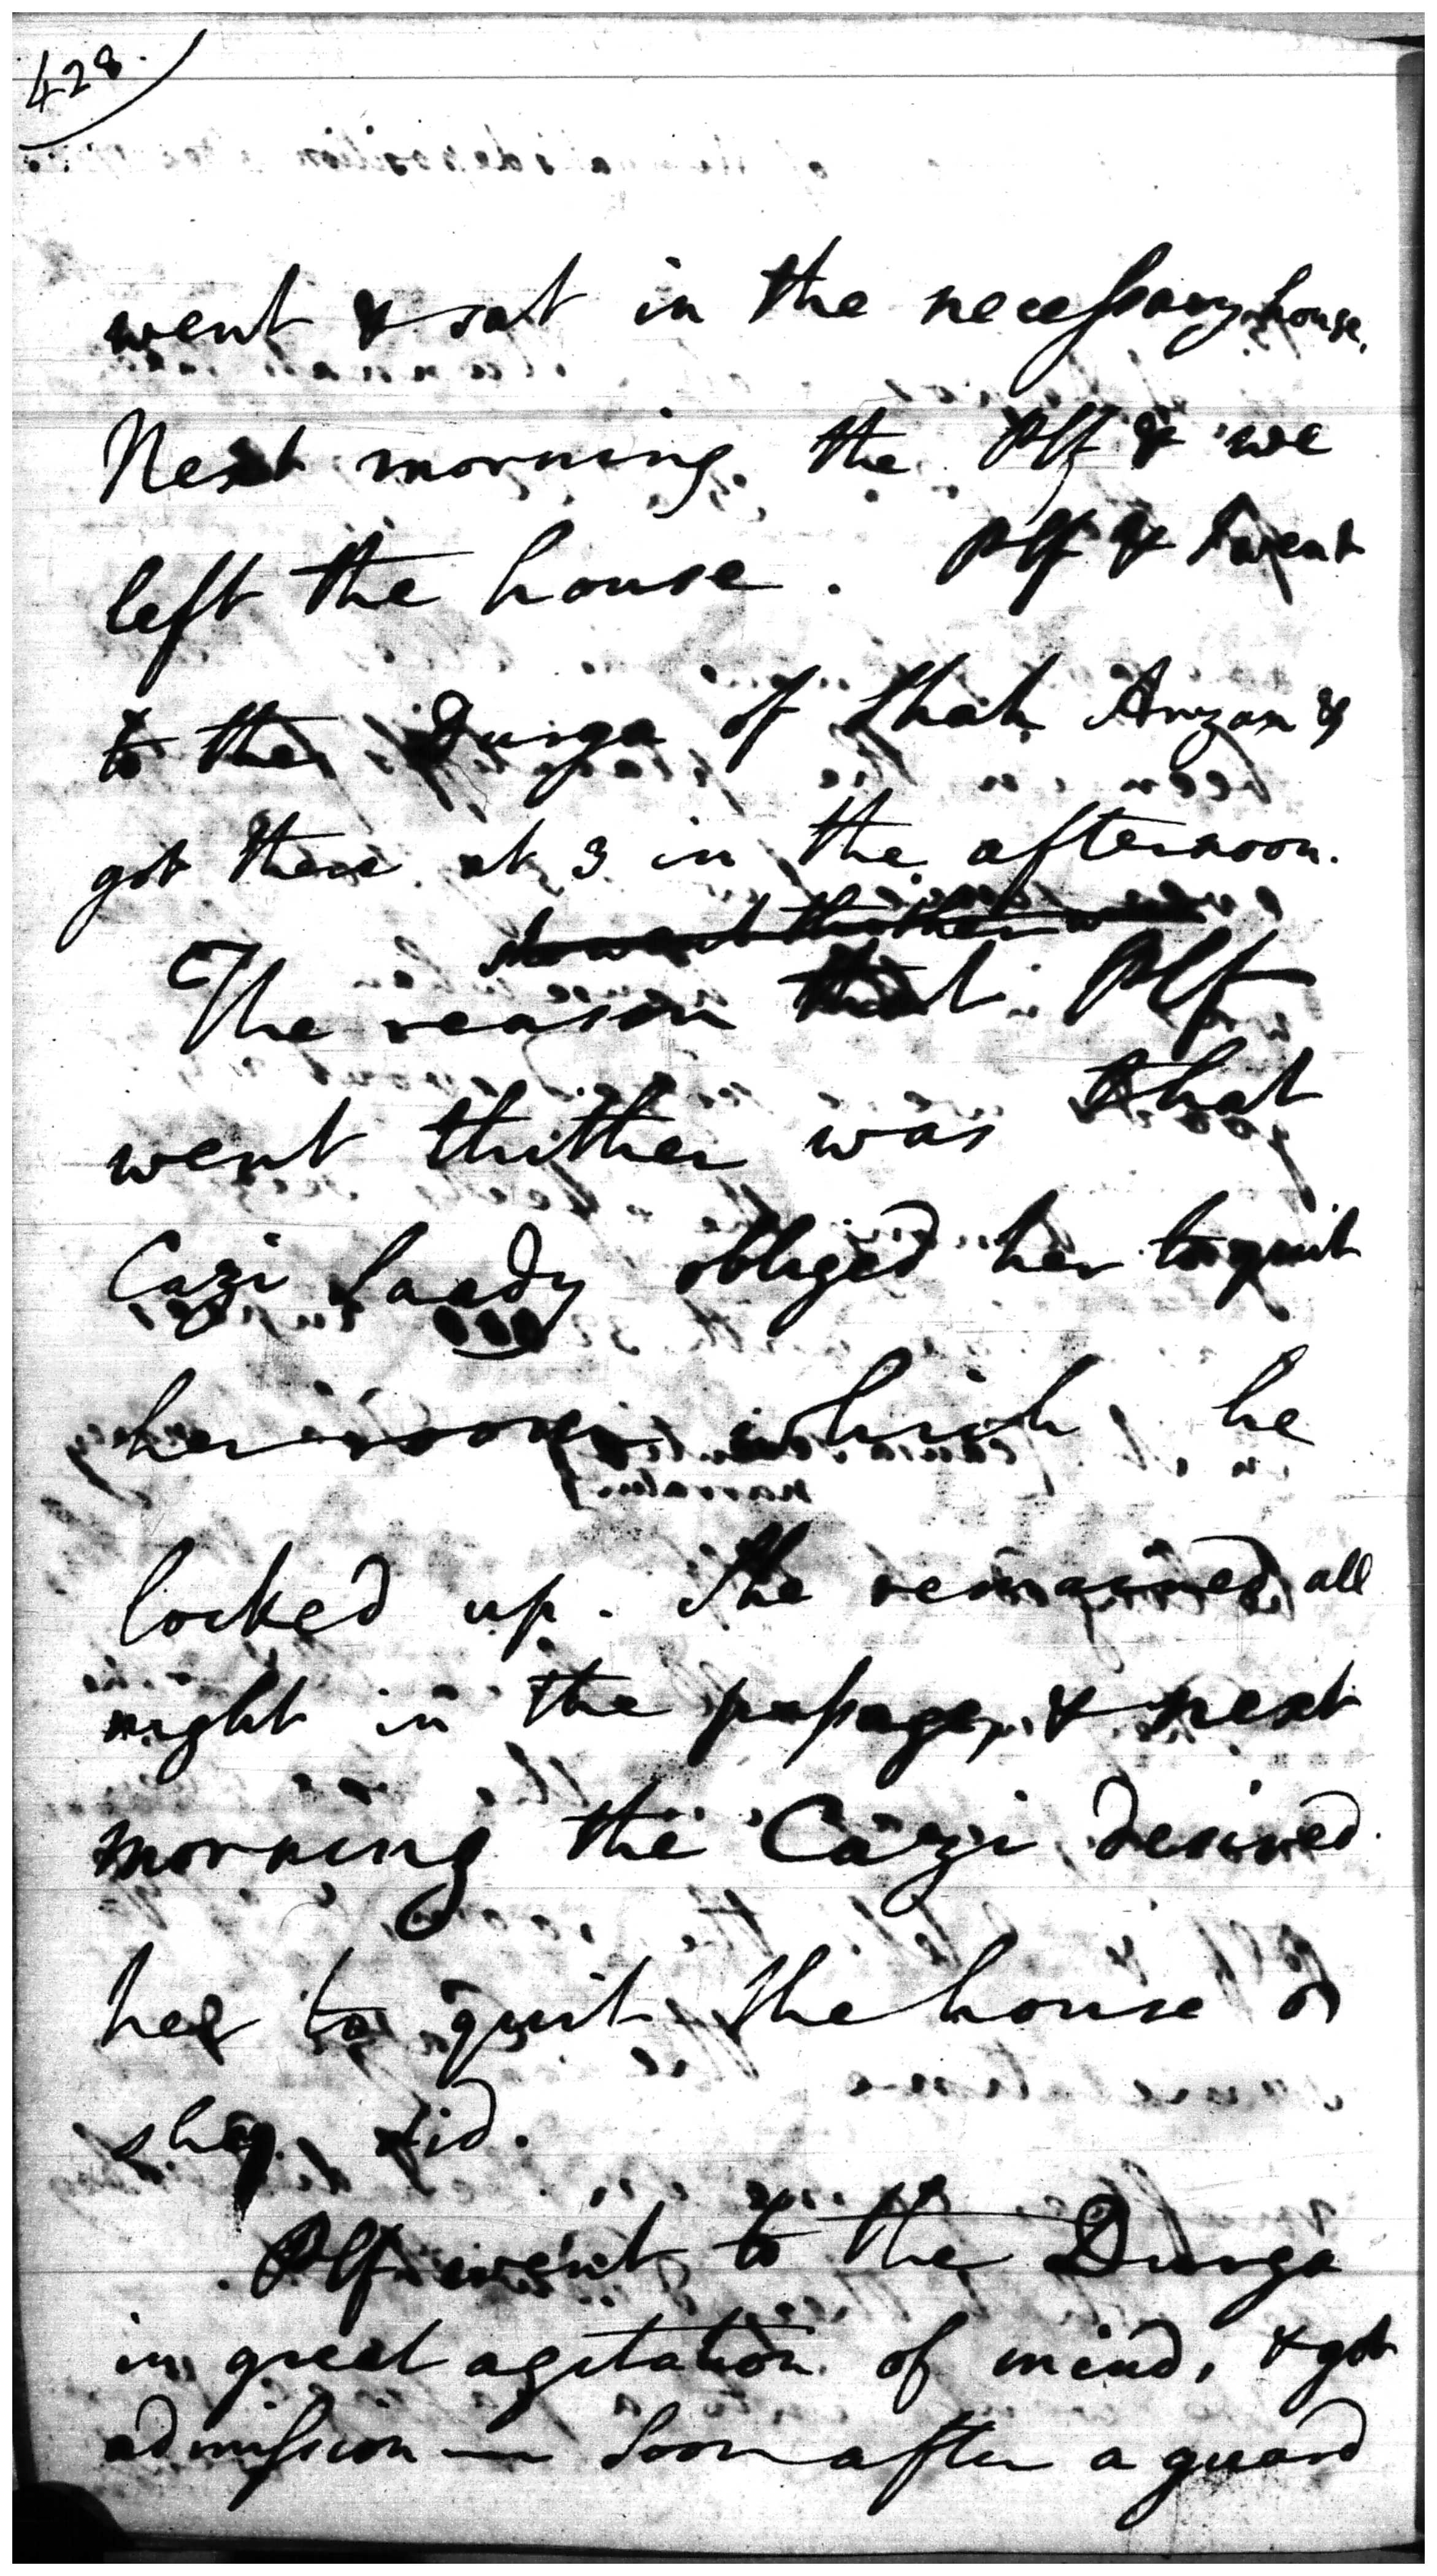 428.
went & sat in the necessary house.
Next morning the Plf & we
left the house. Plf & I went
to the Durga of Shah Arzan &
got there at 3 in the afternoon.
The reason that Plf
went thither was that
Cazi Saady obliged her to quit
her room which he
locked up. She remained all
night in the passage, & next
morning the Cazi desired
her to quit the house &
she did.
Plf went to the Durga
in great agitation of mind, & got
admission — Soon after a guard